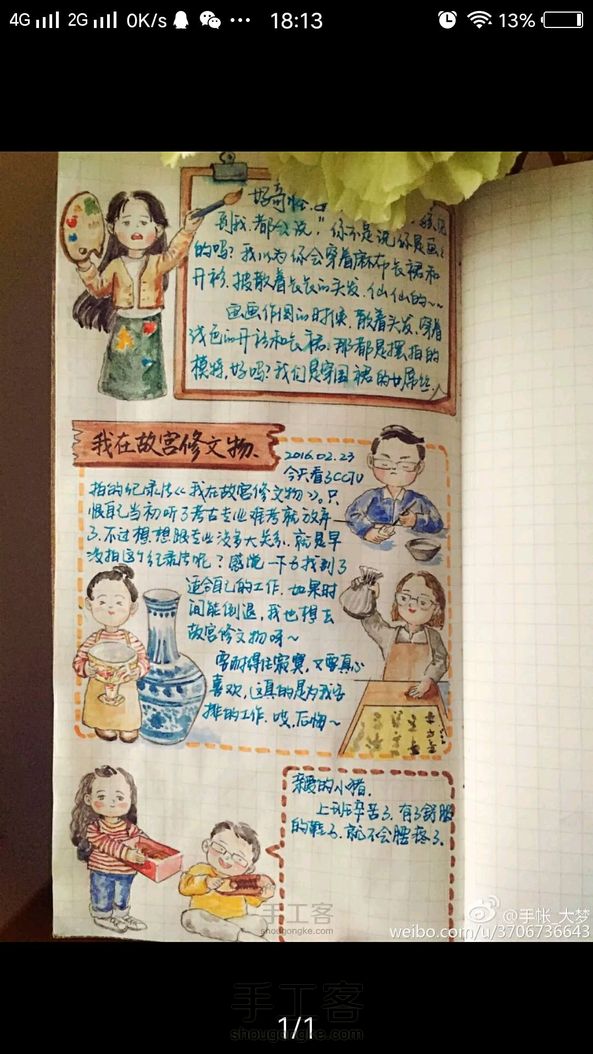 4G 2G 0K/s 18:13 13%
好奇怪
到我,都会说,"你不是说你是画
的吗?我以为你会穿着麻布长裙和
开衫,披散着长长的头发,仙仙的~
画画作图的时候,散着头发,穿着
浅色的开衫和长裙,那都是摆拍的
模特,好吗?我们是穿围裙的女屌丝
我在故宫修文物、
2016.02.23
今天看了CCTV
拍的纪录片《我在故宫修文物》。只
恨自己当初听了考古专业难考就放弃
了,不过想想跟专业没多大关系,就是早
没拍这个纪录片呢?感觉一下子找到了
适合自己的工作,如果时
间能倒退,我也想去
故宫修文物呀~
需耐得住寂寞,又要真心
喜欢,这真的是为我安
排的工作,哎,后悔~
亲爱的小猪,
上班辛苦了,有了舒服
的鞋子,就不会腰疼了,
手工客
shougongke.com
@手帐_大梦
weibo.com/u/3706736643
手工客
shougongke.com
1/1